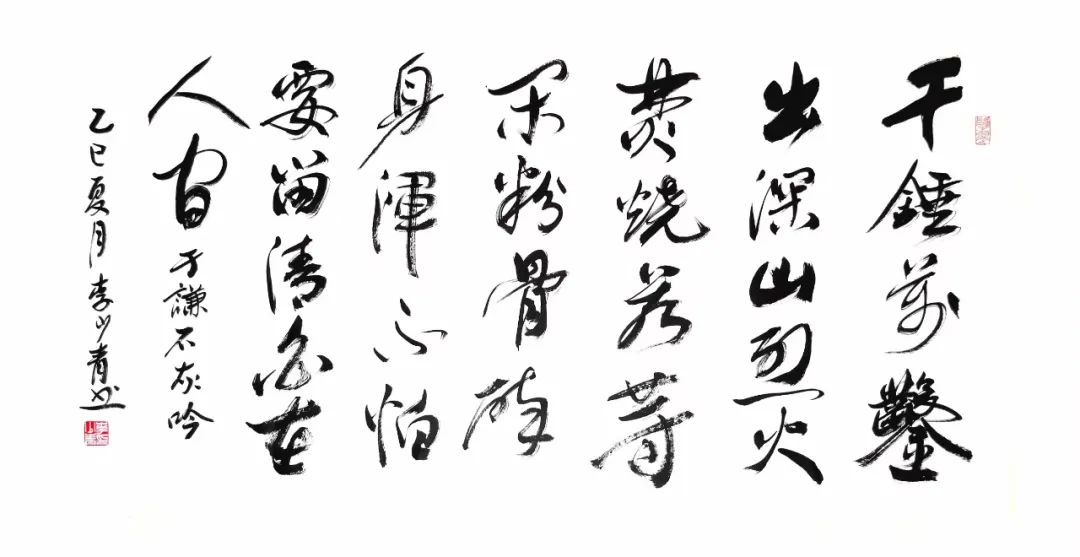 千錘萬鑿
出深山烈火
焚燒若等
閑粉骨碎
身渾不怕
要留清白在
人間
于謙石灰吟
乙巳夏月李山青書